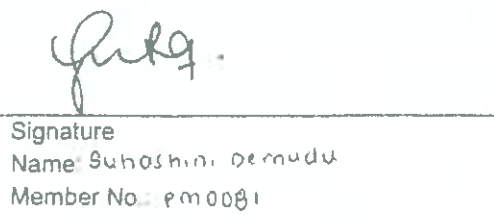 Signature
Name: Suhashini Demudu
Member No.: PM0081